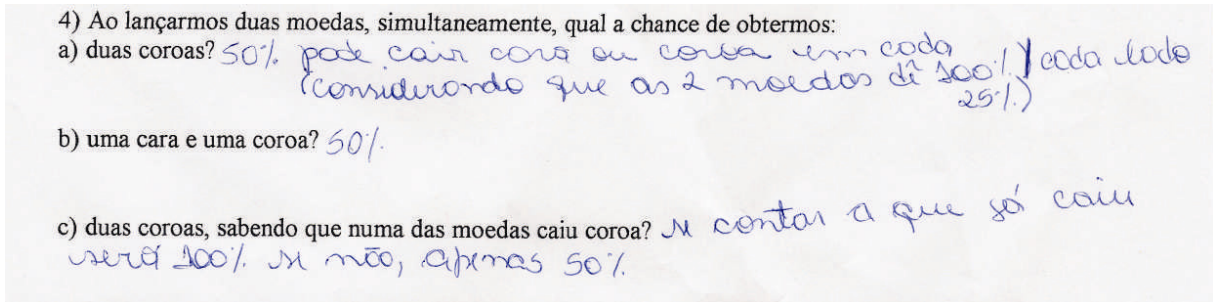 4) Ao lançarmos duas moedas, simultaneamente, qual a chance de obtermos:
a) duas coroas? 50% pode cair cara ou coroa em cada
(considerando que as 2 moedas dê 100%) cada lado
25%)
b) uma cara e uma coroa? 50%.
c) duas coroas, sabendo que numa das moedas caiu coroa? se contar a que já caiu
será 100% se não, apenas 50%.